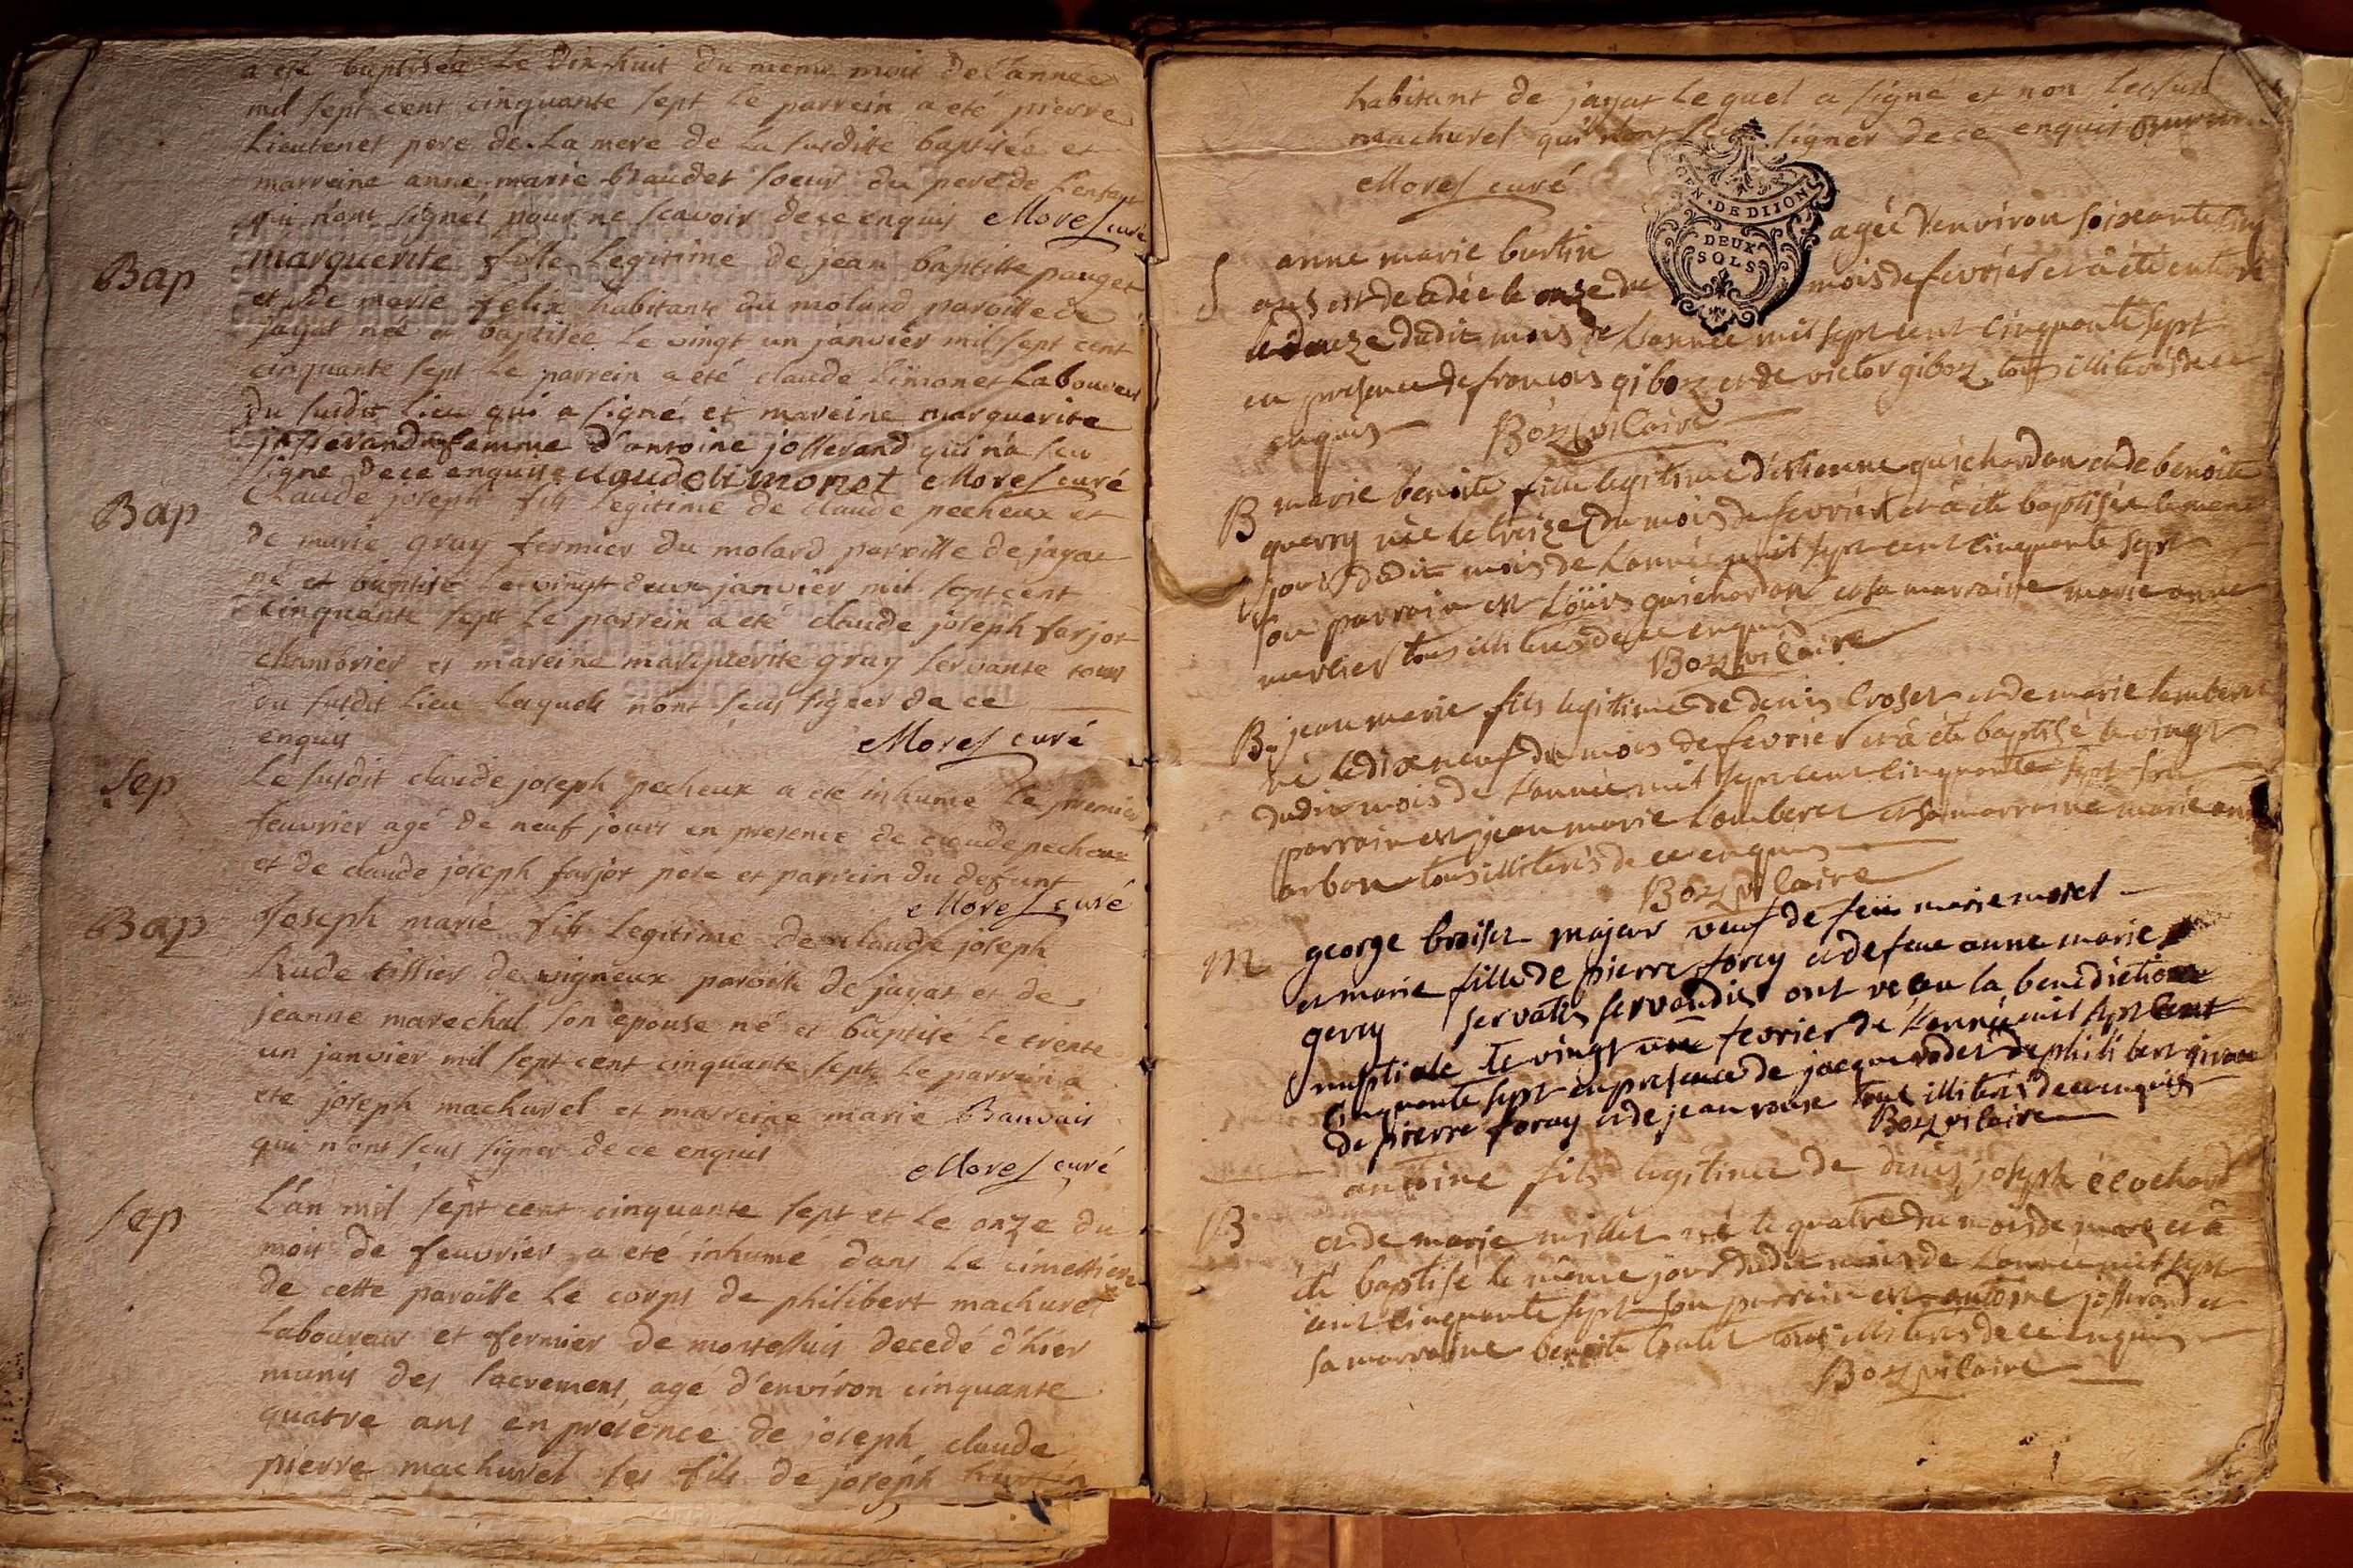 a été baptisée le dix huit du meme mois de l'année
mil sept cent cinquante sept le parrein a été pierre
Lieutenet pere de la mere de la susditte baptisée et
marreine anne marie Baudet soeur du pere de l'enfant
qui n'ont signés pour ne scavoir de ce enquis Morel curé
Bap marguerite fille legitime de jean baptiste pauget
et de marie felix habitants du molard paroisse de
jayat née et baptisée le vingt un janvier mil sept cent
cinquante sept le parrein a été claude Limonet Laboureur
du susdit lieu qui a signé et mareine marguerite
josserand femme d'antoine josserand qui n'a seu
signe de ce enquise claude limonet Morel curé
Bap Claude joseph fils legitime de claude pecheux et
de marie gray fermier du molard paroisse de jayat
né et baptisé le vingt deux janvier mil sept cent
cinquante sept le parrein a été claude joseph farjot
chambrier et mareine marguerite gray servante tous
du susdit lieu lequels n'ont seus signer de ce
enquis Morel curé
Sep Le susdit claude joseph pecheux a été inhumé le premier
feuvrier agé de neuf jours en presence de claude pecheux
et de claude joseph farjot pere et parrein du defunt
Morel curé
Bap Joseph marie fils legitime de claude joseph
Rude tissier de vigneux paroisse de jayat et de
jeanne marechal son epouse né et baptisé le trente
un janvier mil sept cent cinquante sept le parrein a
été joseph machurel et marreine marie Bauvais
qui n'ont seus signer de ce enquis
Morel curé
Sep L'an mil sept cent cinquante sept et le onze du
mois de feuvrier a été inhumé dans le cimettiere
de cette paroisse le corps de philibert machurel
Laboureur et fermier de decedé d'hier
munis des sacrements age d'environ cinquante
quatre ans en présence de joseph claude
pierre machurel ses fils de joseph
habitant de jayat lequel a signé et non les
machurel qui n'ont signer de ce enquis
Morel curé
GEN · DE DIJON
DEUX
SOLS
S anne marie burtin agée d'environ soixante cinq
ans est decedée le onze du mois de fevrier et a été enterré
le douze dudit mois de l'année mil sept cent cinquante sept
en presence de francois giboz et de victor giboz tous illiterés de ce
enquis Boz vicaire
B marie benoite fille legitime d'estienne guichardon et de benoite
guerry née le treize du mois de fevrier et a été baptisée le meme
jour dudit mois de l'année mil sept cent cinquante sept
son parrain est Loüis guichardon et sa marraine marie anne
tous illiterés de ce enquis
Boz vicaire
B jean marie fils legitime de denis et de marie lambert
né le dix neuf du mois de fevrier et a été baptisé le vingt
dudit mois de l'année mil sept cent cinquante sept son
parrain est jean marie Lambert et sa marraine marie
arbon tous illiterés de ce enquis
Boz vicaire
M george majeur veuf de feüe marie morel
et marie fille de pierre forey et de feue anne marie
gerey servatis servandis ont reçu la benediction
nuptiale le vingt fevrier de l'année mil sept cent
cinquante sept en presence de jacque de philibert
de pierre foray et de jean tous illiterés de ce enquis
Boz vicaire
B antoine fils legitime de denis joseph
et de marie millet né le quatre du mois de mars et a
été baptisé le même jour dudit mois de l'année mil sept
cent cinquante sept son parrain est antoine josserand et
sa marraine benoite tous illiterés de ce enquis
Boz vicaire